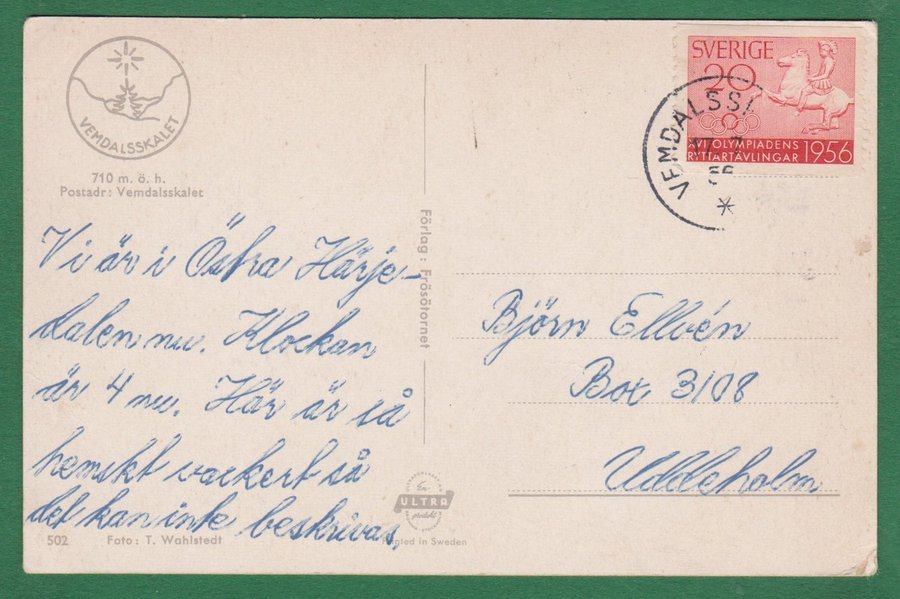 VEMDALSSKALET
710 m. ö. h.
Postadr: Vemdalsskalet
Vi är i Östra Härje-
dalen nu. Klockan
är 4 nu. Här är så
hemskt vackert så
det kan inte beskrivas.
502
Foto: T. Wahlstedt
Förlag: Frösötornet
En
ULTRA
produkt
Printed in Sweden
SVERIGE
20
XVI OLYMPIADENS
RYTTARTÄVLINGAR 1956
VEMDALSSK
17 7
56
Björn Ellvén
Box 3108
Uddeholm